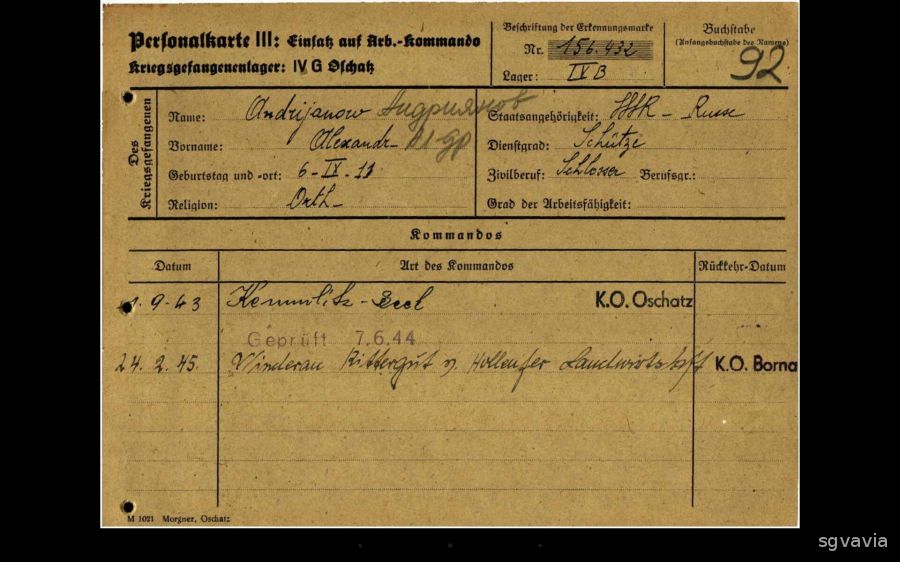 Personalkarte III: Einsatz auf Arb.-Kommando
Kriegsgefangenenlager: IV G Oschatz
Beschriftung der Erkennungsmarke
Nr. 156.432
Lager: IV B
Buchstabe
(Anfangsbuchstabe des Namens)
92
Des Kriegsgefangenen
Name: Andrijanow Андриянов
Vorname: Alexandr
Geburtstag und -ort: 6-IX-11
Religion: Orth-
Staatsangehörigkeit: Russe
Dienstgrad: Schütze
Zivilberuf: Schlosser Berufsgr.:
Grad der Arbeitsfähigkeit:
Kommandos
Datum Art des Kommandos Rückkehr-Datum
1.9-43 Kemmlitz- K.O. Oschatz
Geprüft 7.6.44
24.2.45. Rittergut v. Landwirtschaft K.O. Borna
M 1021 Morgner, Oschatz
sgvavia